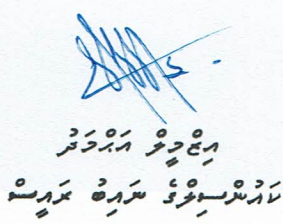 އިޒްމީލް އަޙްމަދު
ކައުންސިލްގެ ނައިބު ރައީސް